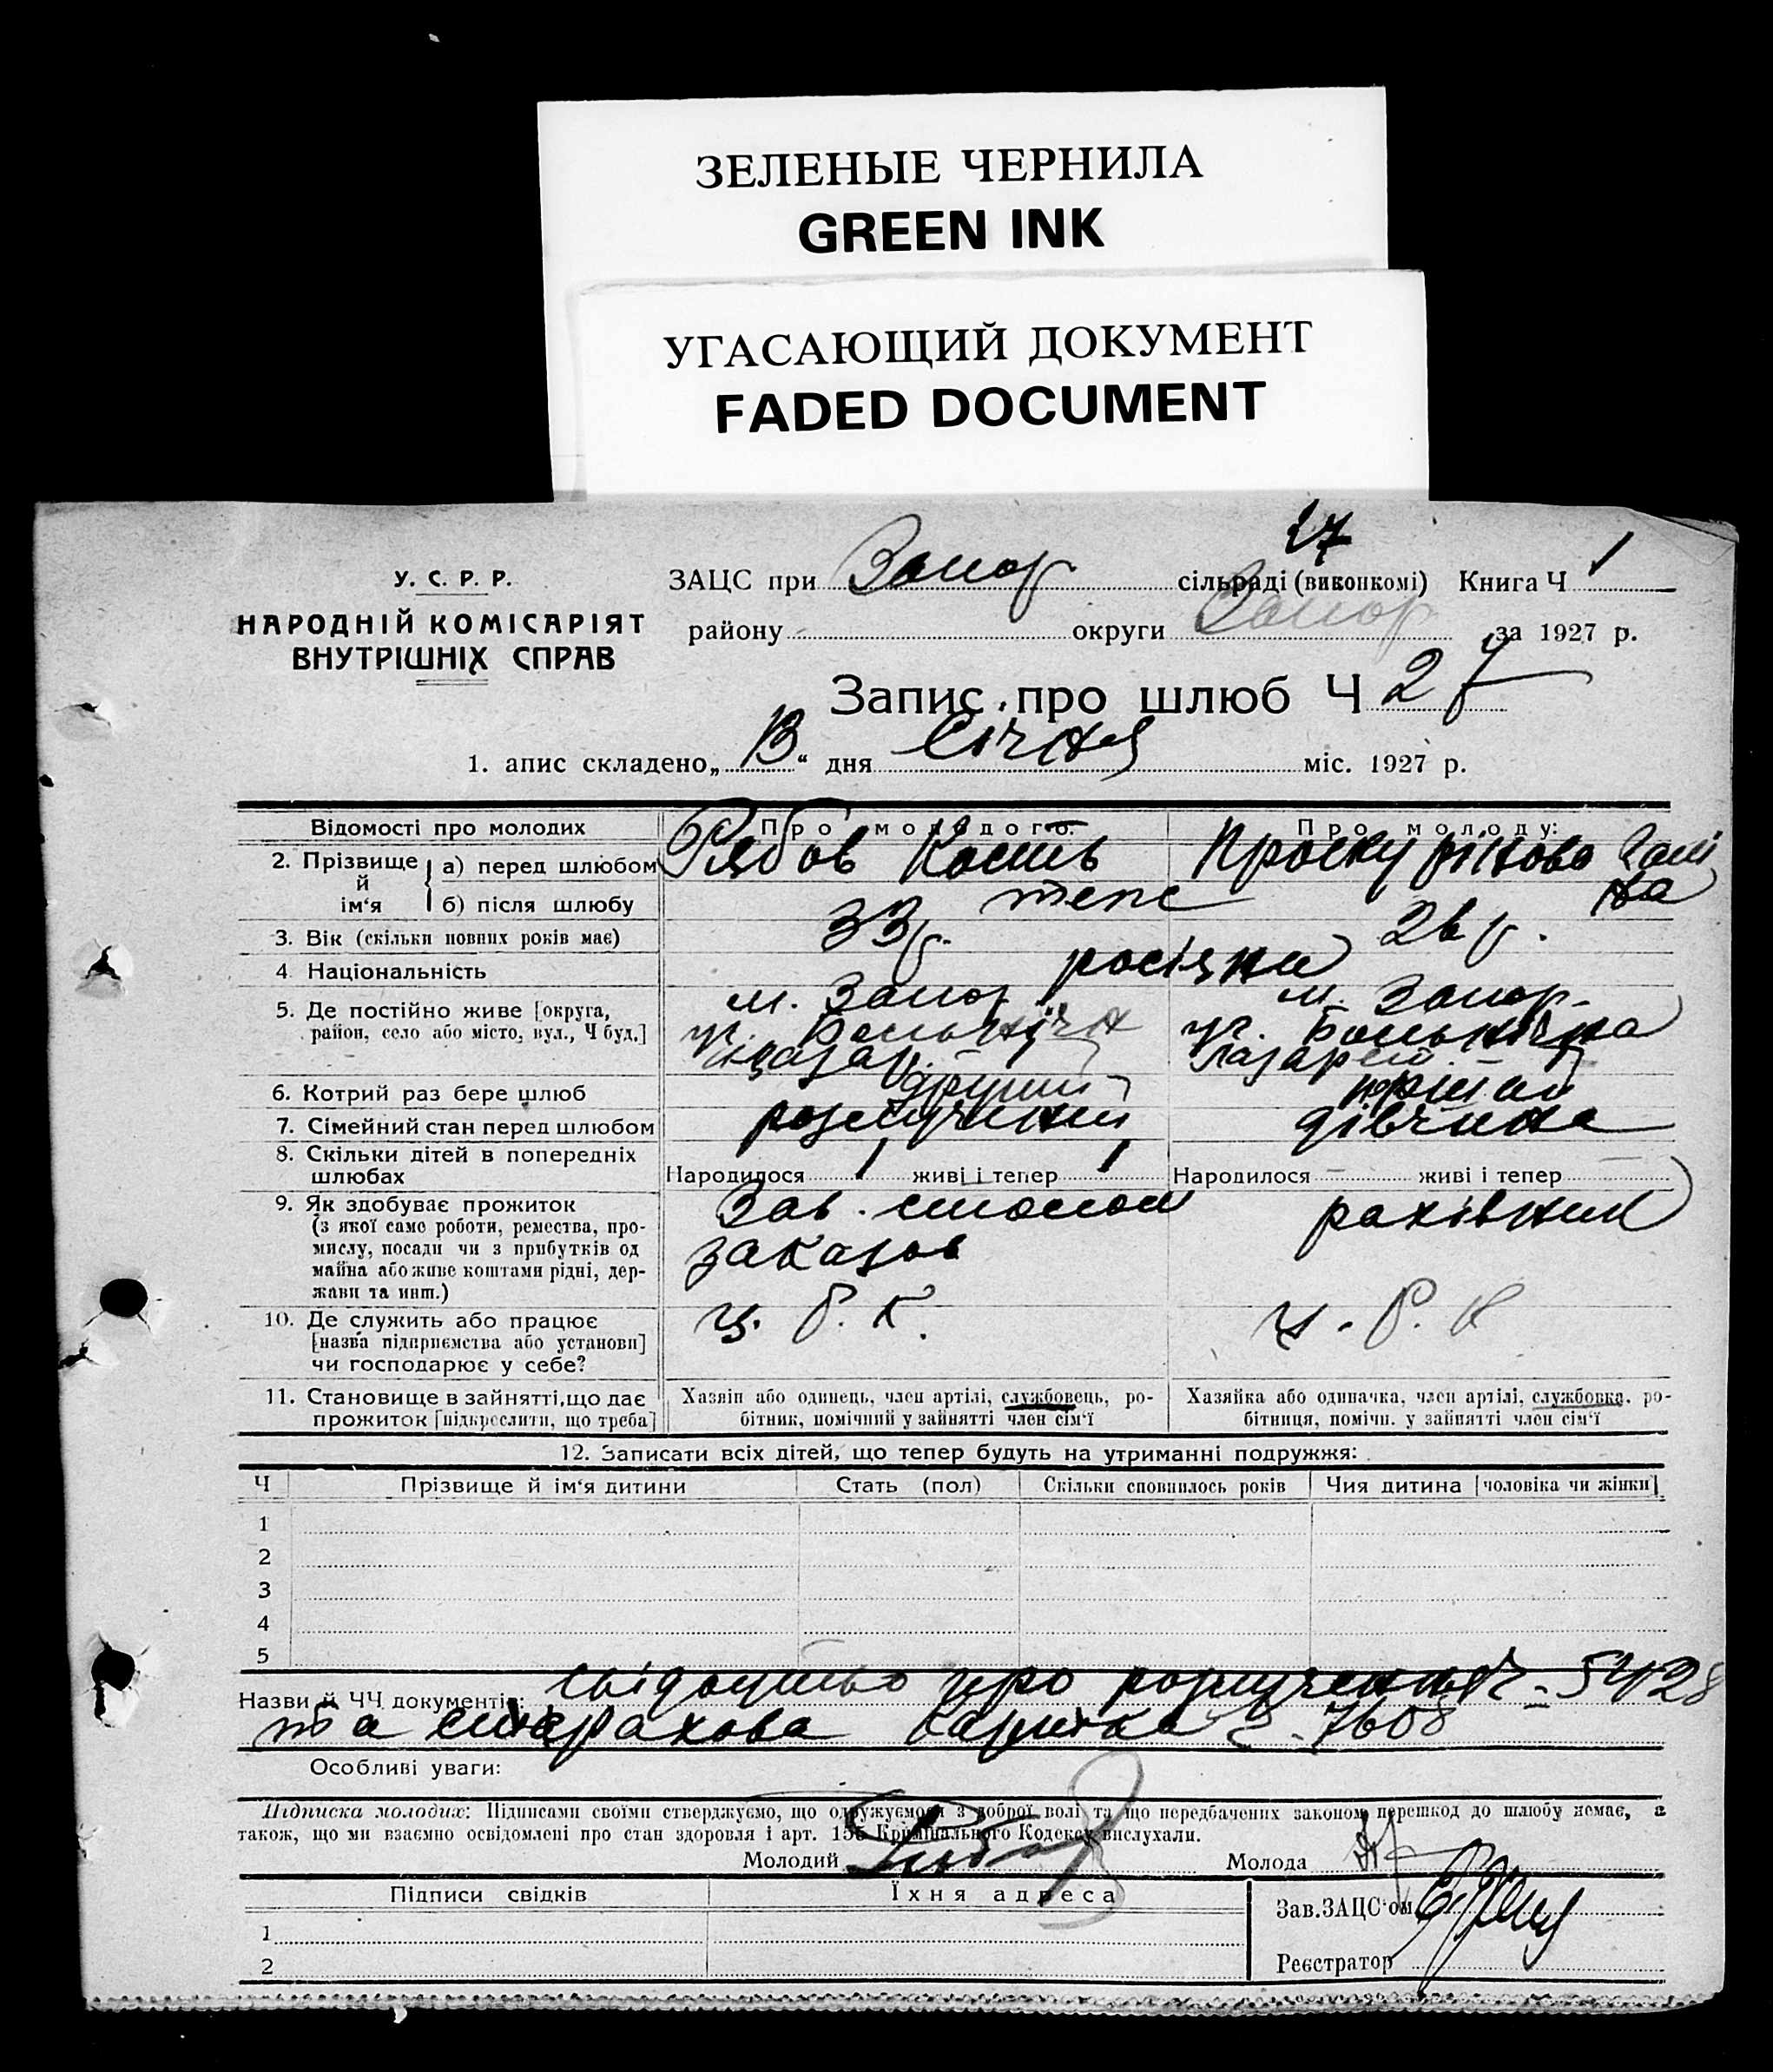 ЗЕЛЕНЫЕ ЧЕРНИЛА
GREEN INK
УГАСАЮЩИЙ ДОКУМЕНТ
FADED DOCUMENT
27
У. С. Р. Р.
НАРОДНІЙ КОМІСАРІЯТ
ВНУТРІШНІХ СПРАВ
ЗАЦС при Запор сільраді (виконкомі) Книга Ч 1
району округи Запор за 1927 р.
Запис про шлюб Ч 27
1. апис складено „13“ дня Січня міс. 1927 р.
Відомості про молодих Про молодого: Про молоду:
2. Прізвище й ім‘я
а) перед шлюбом Рябов Кость Проскурнікова
б) після шлюбу теж
3. Вік (скільки повних років має) 33 р. 26 р.
4. Національність росіяни
5. Де постійно живе [округа, м. Запор м. Запор.
район, село або місто, вул., Ч буд.] ул. Больнічн ул. Больнічна
6. Котрий раз бере шлюб другий перший
7. Сімейний стан перед шлюбом розлучений дівчина
8. Скільки дітей в попередніх
шлюбах Народилося 1 живі і тепер 1 Народилося — живі і тепер
9. Як здобуває прожиток Зав. столом рахівник
(з якої само роботи, ремества, про- заказов
мислу, посади чи з прибутків од
майна або живе коштами рідні, дер-
жави та инш.)
10. Де служить або працює Ц. Р. К. Ц. Р. К
[назва підприємства або установи]
чи господарює у себе?
11. Становище в зайнятті, що дає Хазяін або одинець, член артілі, службовець, ро- Хазяйка або одиначка, член артілі, службовка, ро-
прожиток [підкреслити, що треба] бітник, помічний у зайнятті член сім‘ї бітниця, помічн. у зайнятті член сім‘ї
12. Записати всіх дітей, що тепер будуть на утриманні подружжя:
Ч Прізвище й ім‘я дитини Стать (пол) Скільки сповнилось років Чия дитина [чоловіка чи жінки]
1
2
3
4
5
Назви й ЧЧ документів: Свідоцтво про розлучення Ч - 5428
та страхова картка Ч - 7608
Особливі уваги:
Підписка молодих: Підписами своїми стверджуємо, що одружуємося з доброї волі та що передбачених законом перешкод до шлюбу немає, а
також, що ми взаємно освідомлені про стан здоровля і арт. 155 Кримінального Кодексу вислухали.
Молодий Рябов Молода
Підписи свідків Їхня адреса
Зав. ЗАЦС‘ом
1
Реєстратор
2